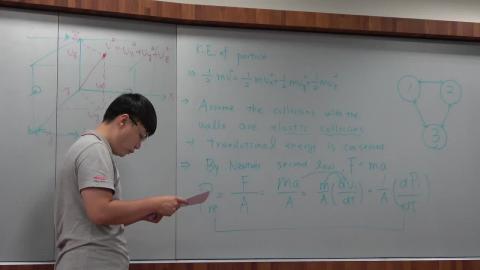 K.E of particle
⇒ ½mv² = ½mvx² + ½mvy² + ½mvz²
→ Assume the collisions with the
walls are elastic collisions
→ translational energy is conserved
⇒ By Newton second law F = ma
= F/A = ma/A = m/A (dvi/dt) = 1/A (dPi/dt)
v² = vx² + vy² + vz²
x
1
2
3